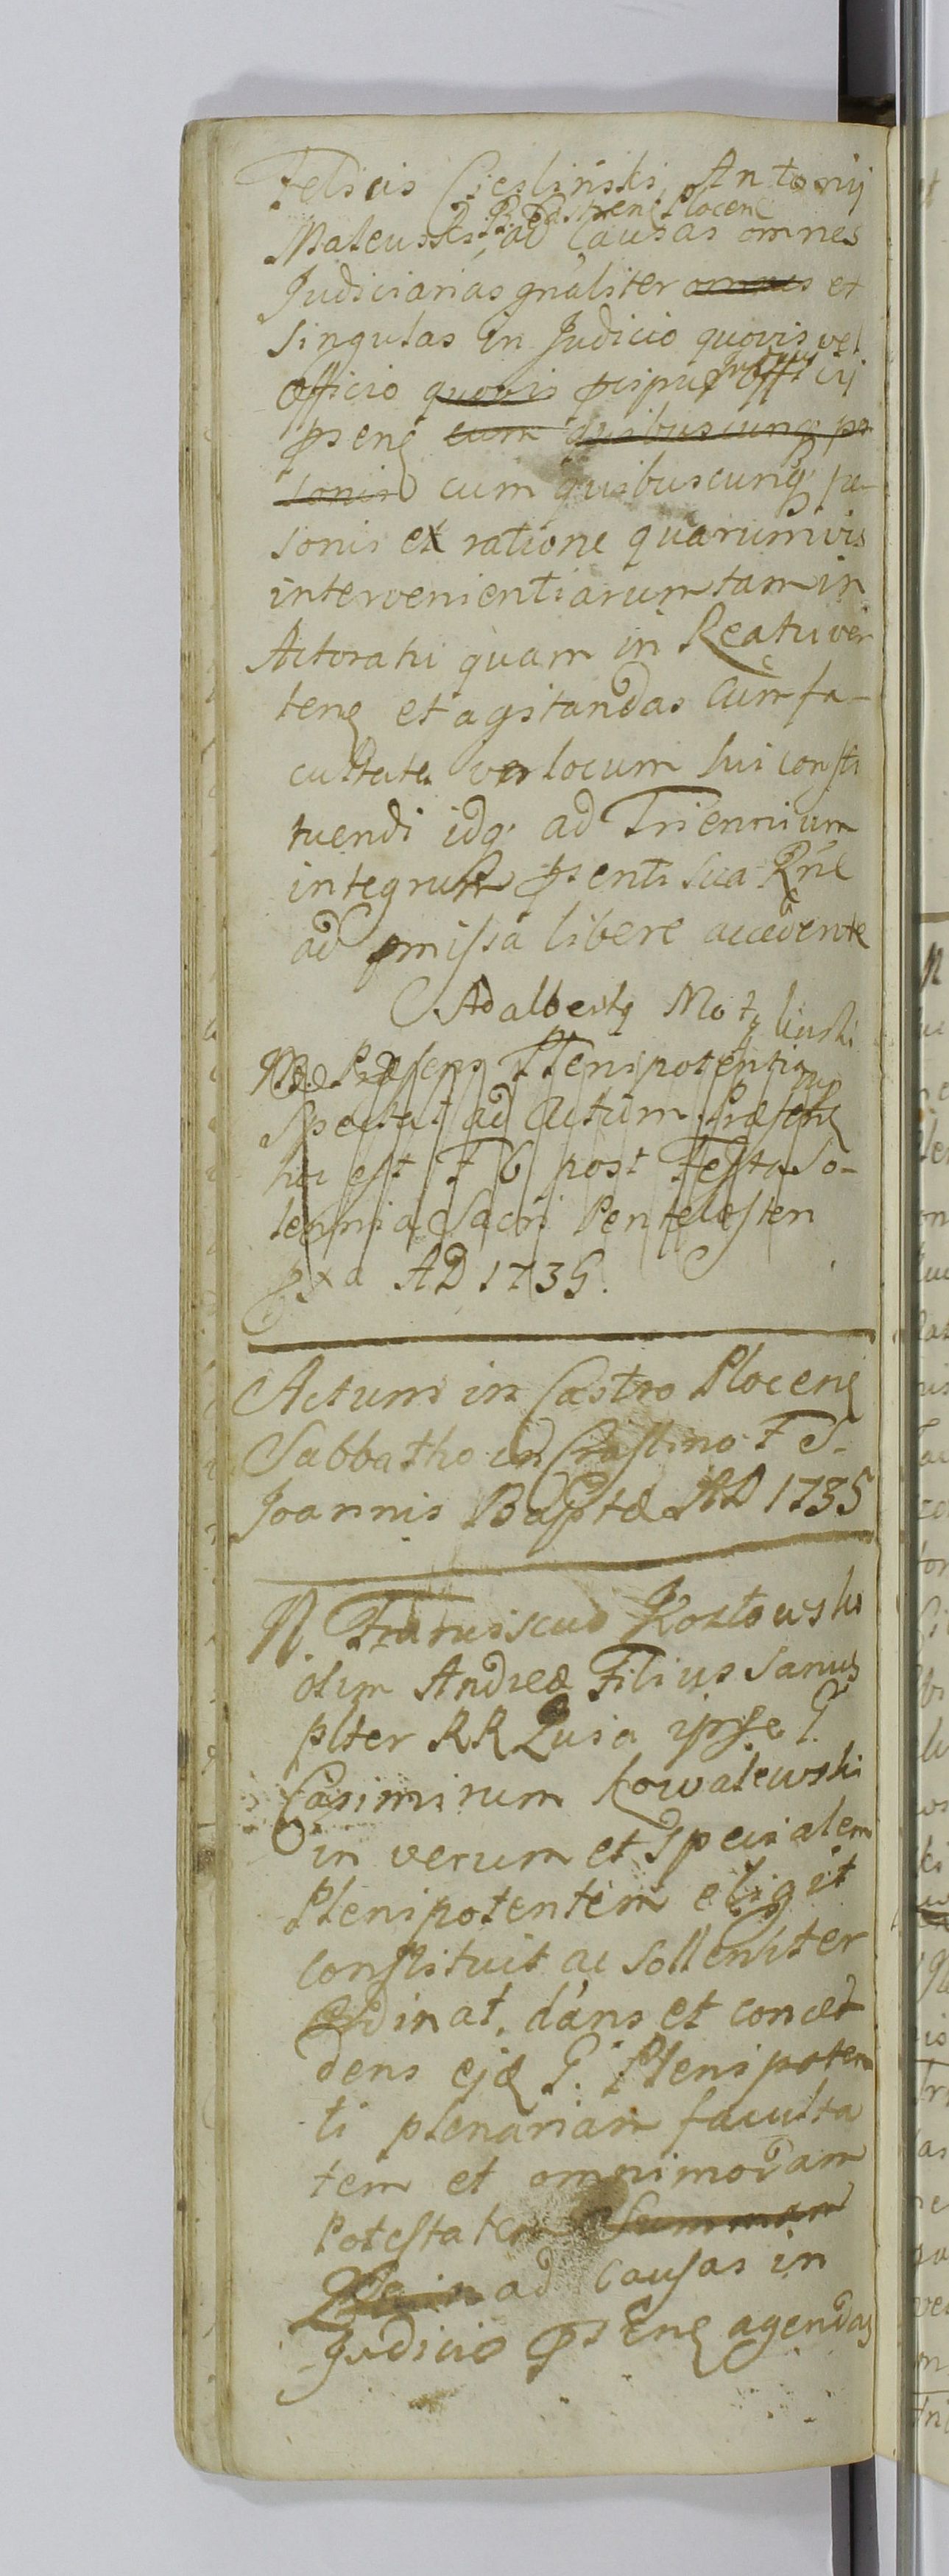 Felicis Cieslinski, Antonij
D. R. Castren Plocen
Mateuski, ad Causas omnes
Judiciarias gnaliter omnes et
Singulas in Judicio quovis vel
Officio quovis Officij
psen cum quibuscunq per
sonis cum quibuscunq per-
sonis ex ratione quarumvis
intervenientiarum tam in
Actoratu quam in Reatu ver
ten et agitandas cum fa-
cultate locum sui consti
tuendi idq ad Triennium
integrum psenti sua Rne
ad pmissa libere accedente
Adalberty
NB. Præsens Plenipotentia
Spectat ad Actum Præsen
hoc est F 6 post Festa So-
lennia Sacri Pentecosten
pxa AD 1735.
Actum in Castro Plocen
Sabbatho in Crastino F S.
Joannis Baptæ AD 1735
N. Franciscus Kozłowski
olim Andreæ Filius Sanus
plter RR Quia ipse G.
Casimirum Kowalewski
in verum et Specialem
Plenipotentem eligit
constituit ac Sollenniter
Ordinat, dans et conced
dens ejd G. Plenipoten
ti plenariam faculta
tem et omnimodam
Potestatem Summam
ad Causas in
Judicio PsEn agendas